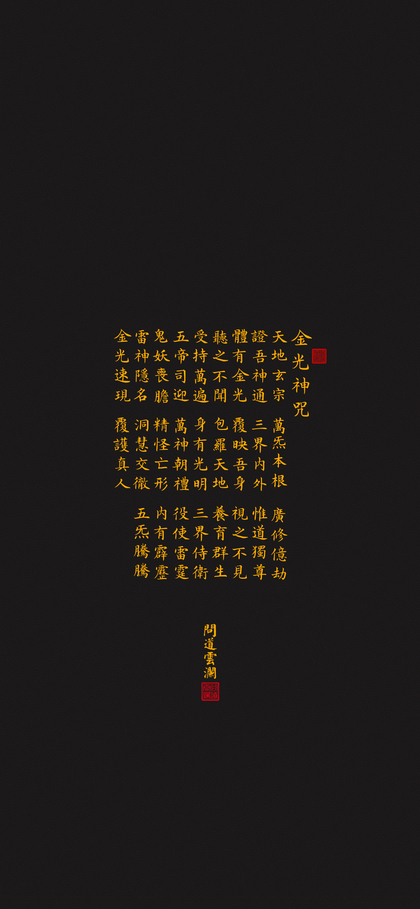 金光神咒
天地玄宗 萬炁本根 廣修億劫
證吾神通 三界內外 惟道獨尊
體有金光 覆映吾身 視之不見
聽之不聞 包羅天地 養育群生
受持萬遍 身有光明 三界侍衛
五帝司迎 萬神朝禮 役使雷霆
鬼妖喪膽 精怪亡形 內有霹靂
雷神隱名 洞慧交徹 五炁騰騰
金光速現 覆護真人
問道雲瀾